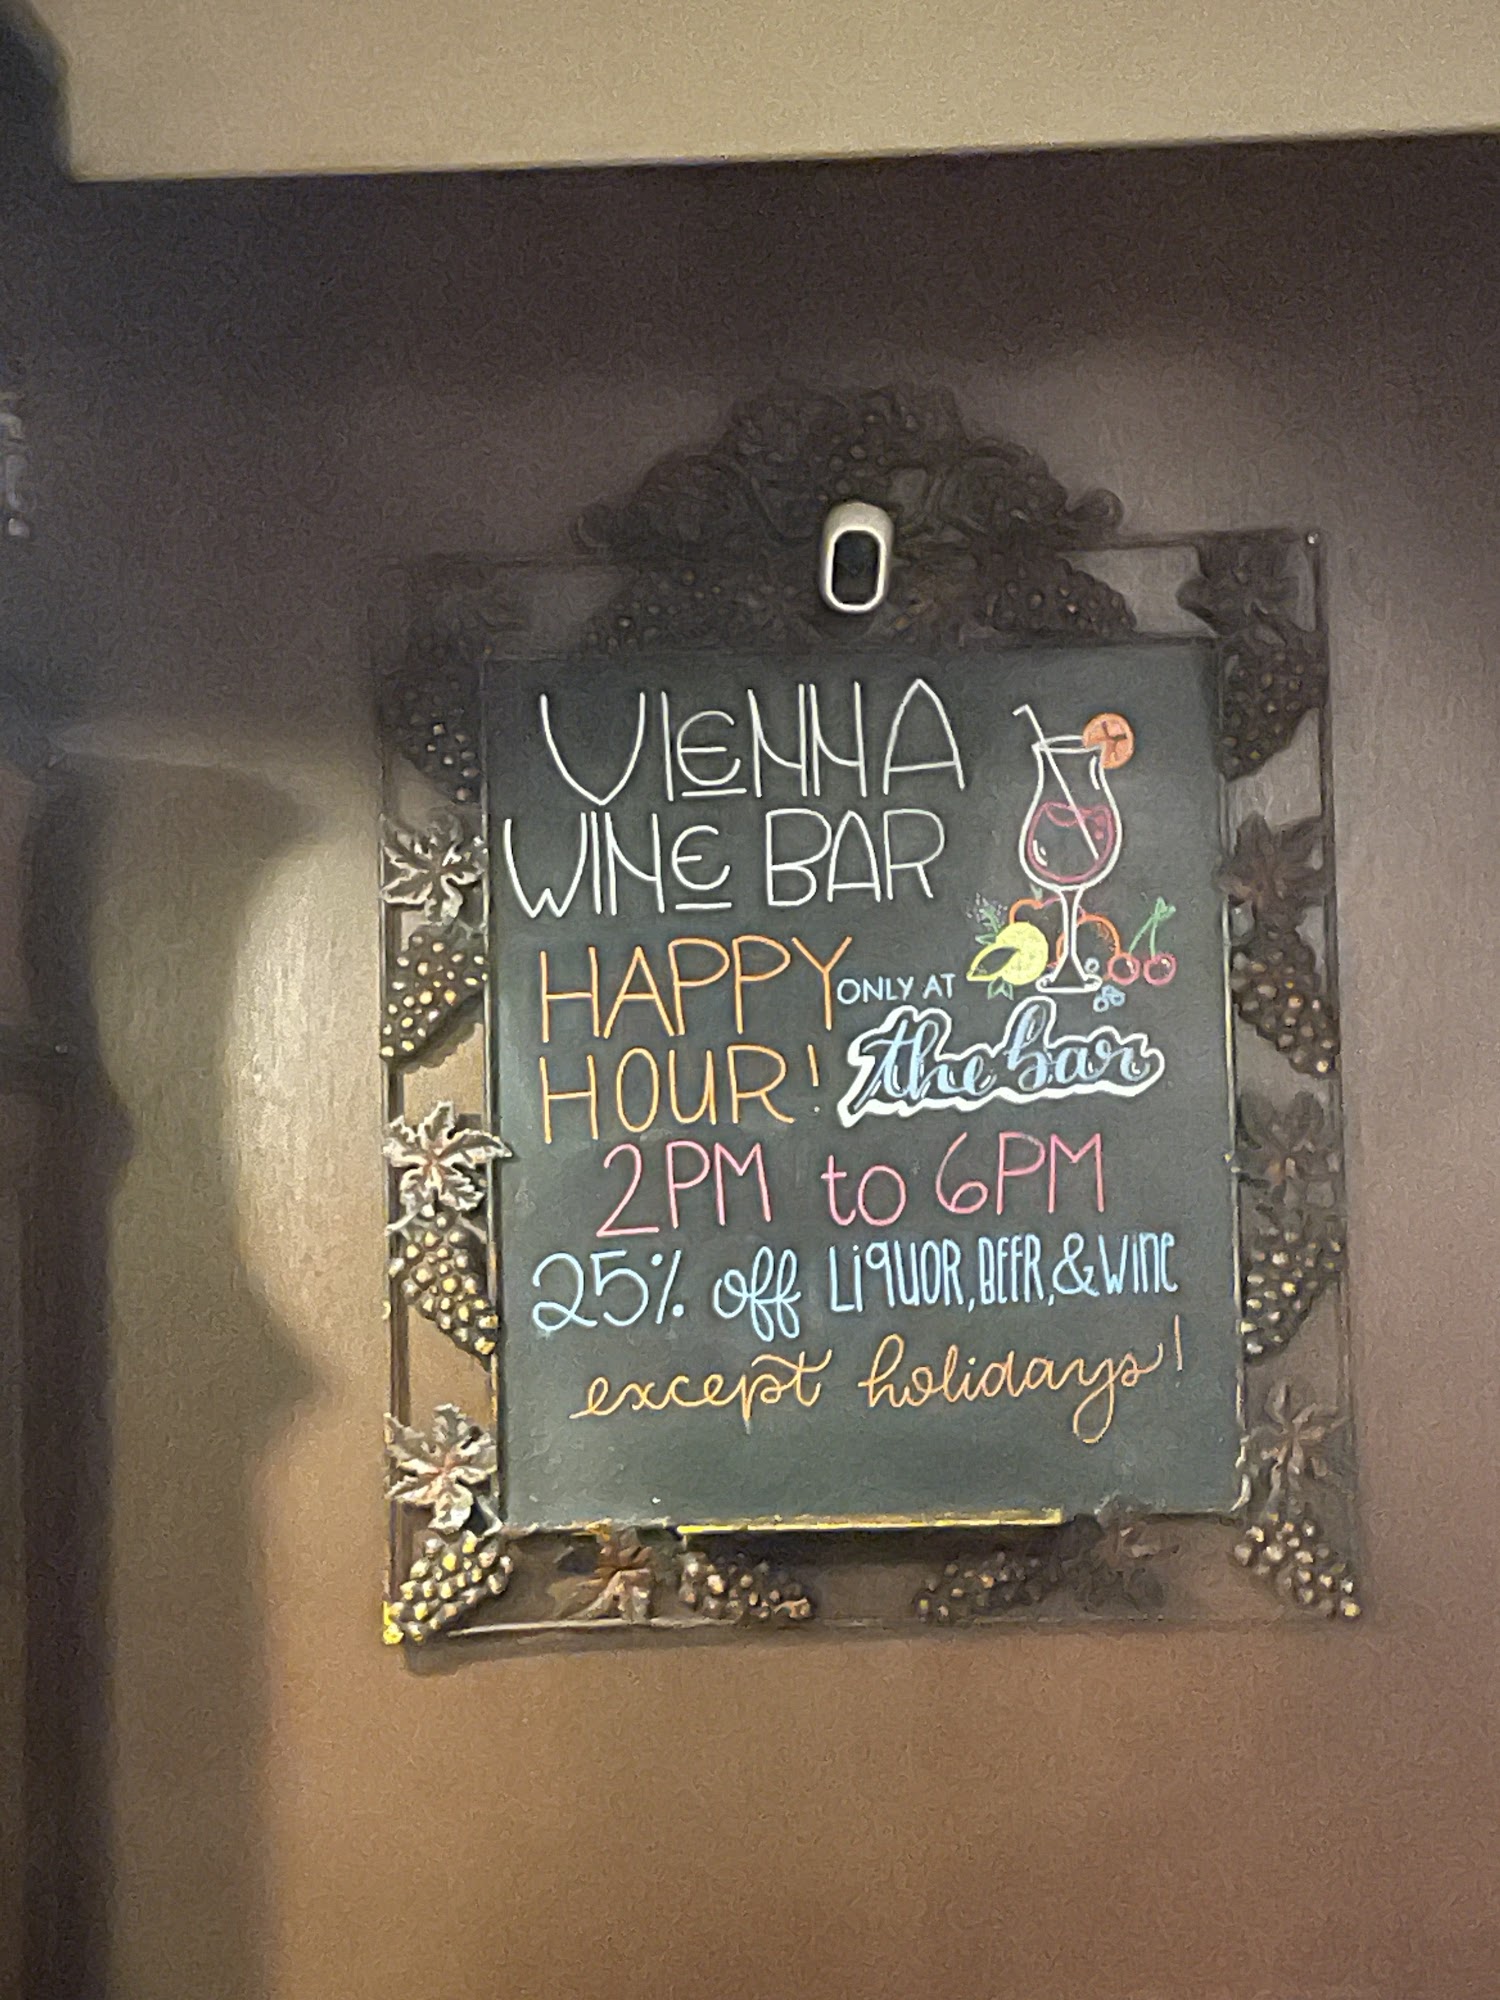 VIENNA
WINE BAR
HAPPY
HOUR!
ONLY AT
the bar
2PM to 6PM
25% off LiQUOR, BEER, & WiNE
except holidays!